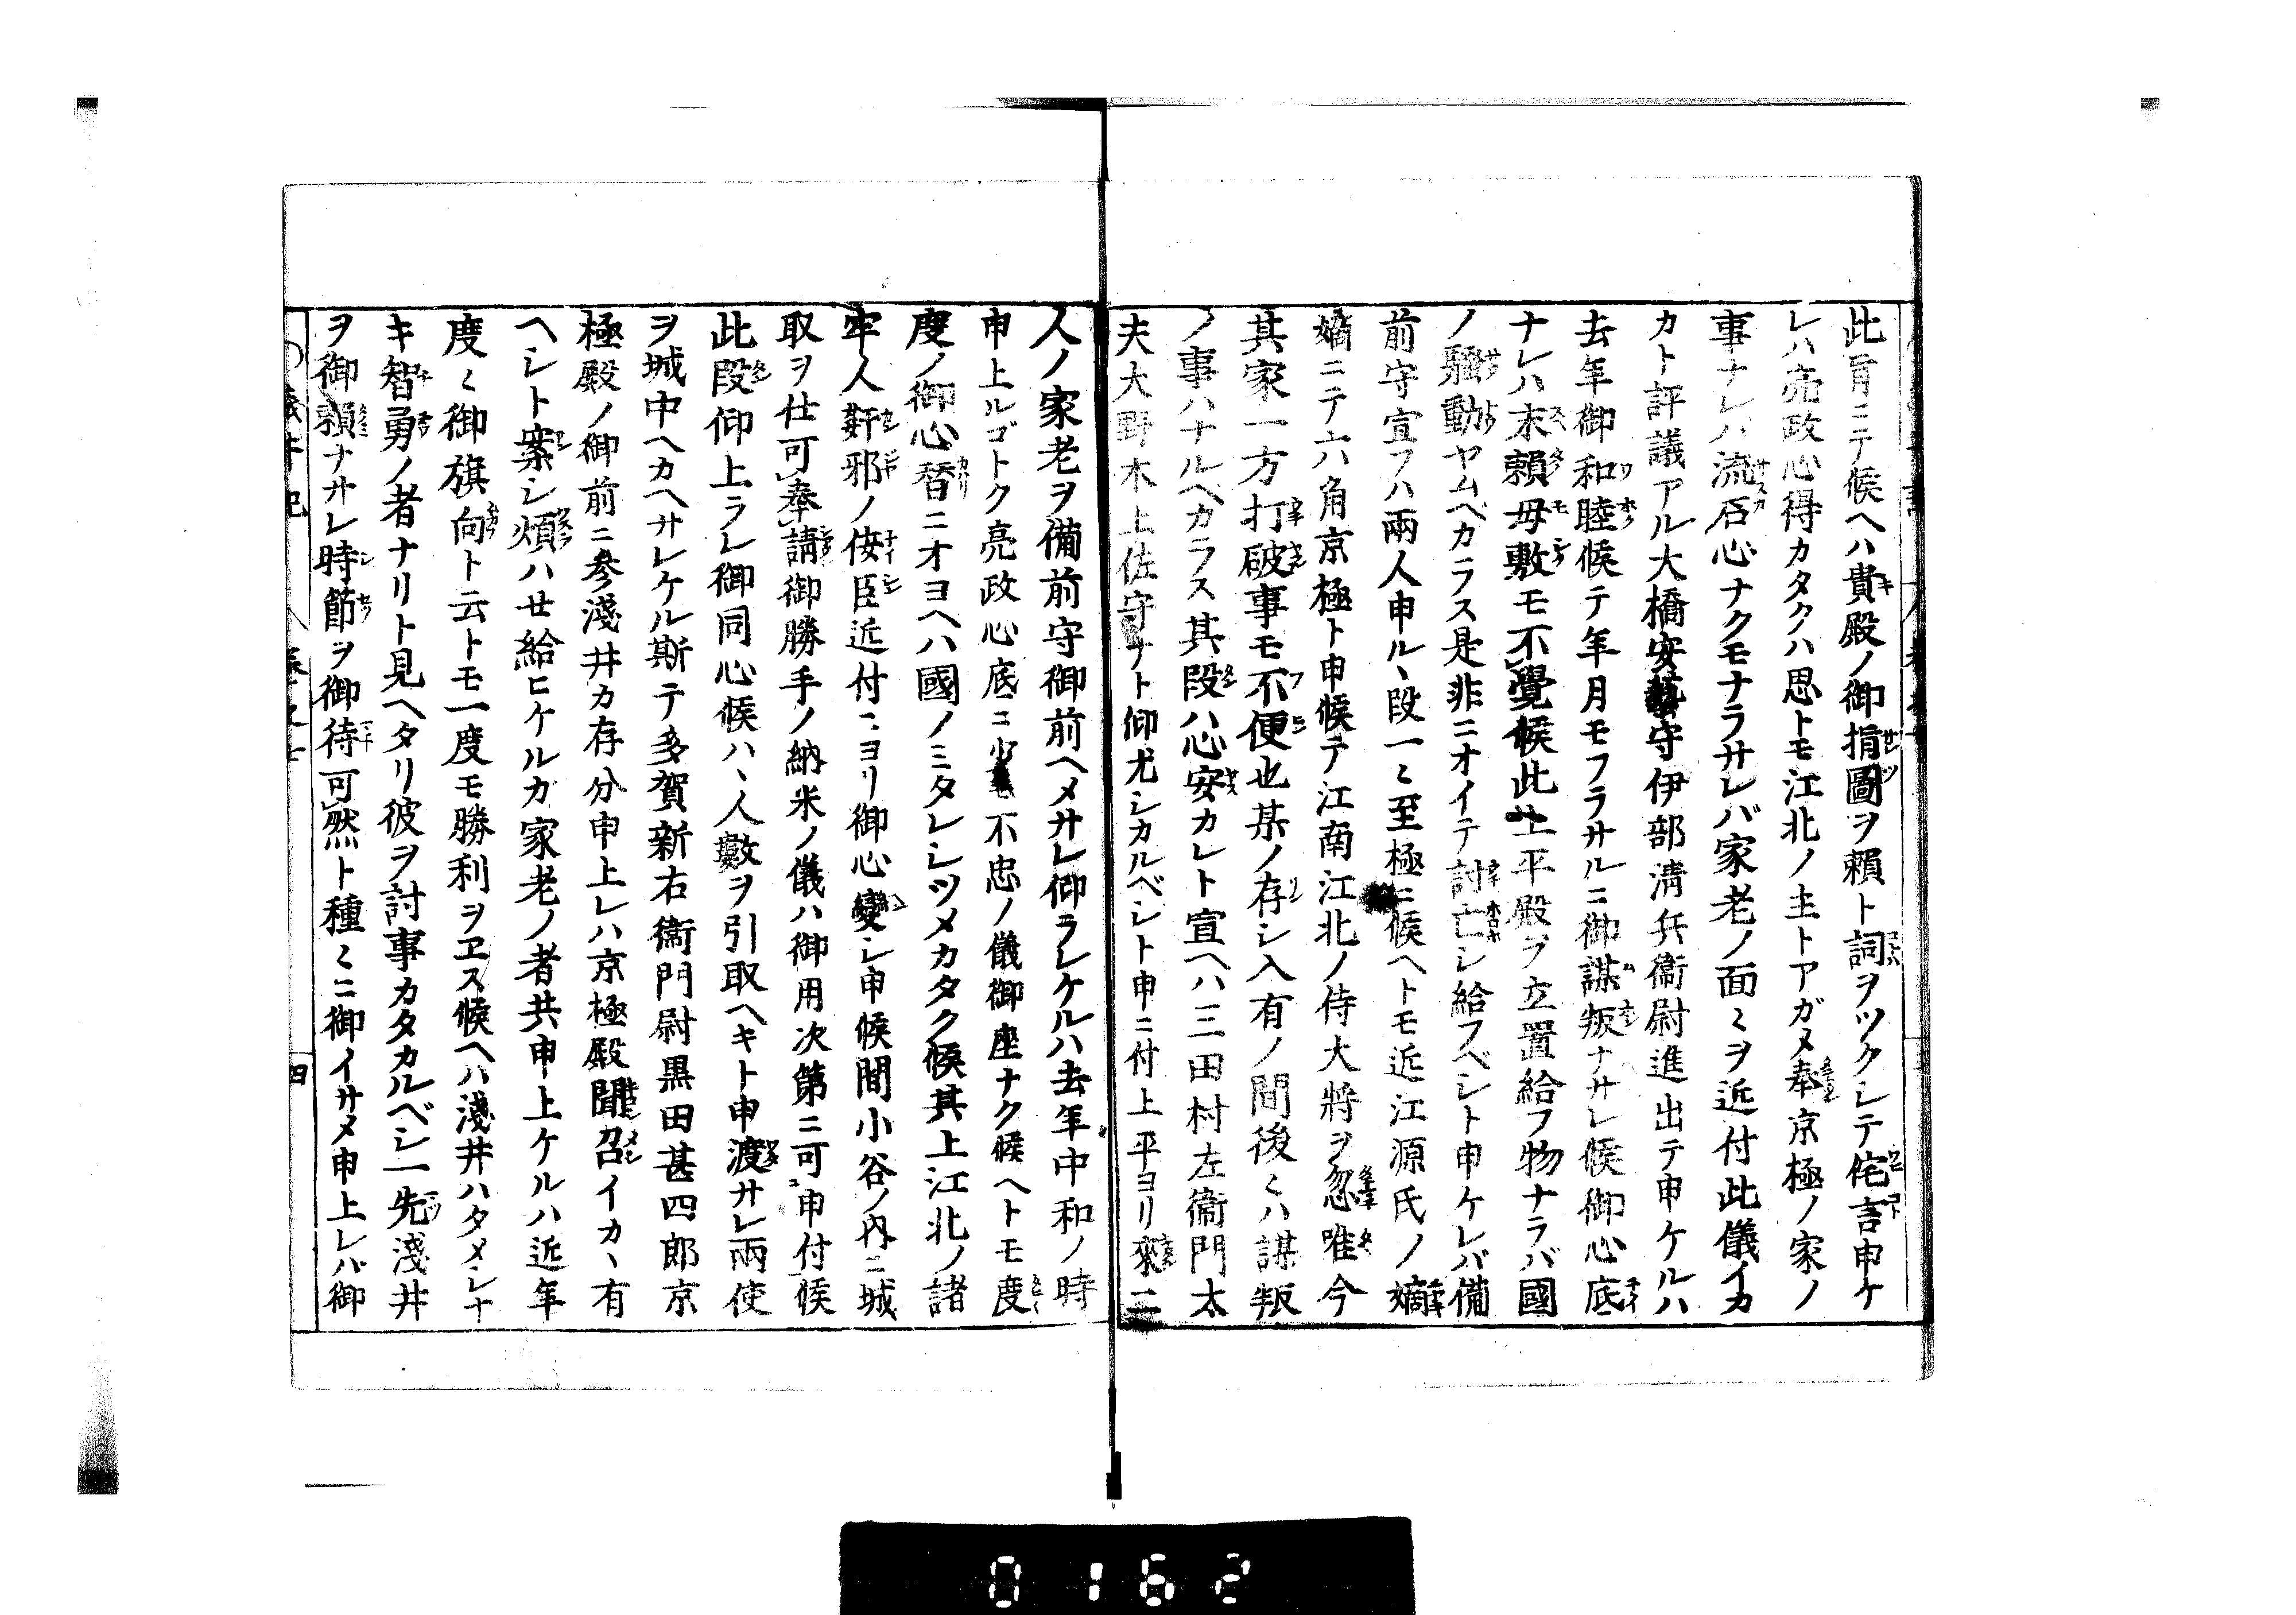 此旨ニテ候ヘハ貴殿ノ御指圖ヲ頼ト詞ヲツクレテ侘言申ケ
レハ亮政心得カタクハ思トモ江北ノ主トアガメ奉京極ノ家ノ
事ナレハ流石心ナクモナラサレバ家老ノ面々ヲ近付此儀イカ
カト評議アル大橋安藝守伊部清兵衞尉進出テ申ケルハ
去年御和睦候テ年月モフラサルニ御謀叛ナサレ候御心底
ナレハ末頼母敷モ不覺候此上平殿ヲ立置給フ物ナラバ國
ノ騒動ヤムベカラス是非ニオイテ討亡シ給フベシト申ケレバ備
前守宣フハ兩人申ル、段一々至極ニ候ヘトモ近江源氏ノ嫡
嫡ニテ六角京極ト申候テ江南江北ノ侍大將ヲ忽唯今
其家一方打破事モ不便也某ノ存シ入有ノ間後々ハ謀叛
ノ事ハナルヘカラス其段ハ心安カレト宣ヘハ三田村左衞門太
夫大野木土佐守ナト仰尤シカルベシト申ニ付上平ヨリ來二
人ノ家老ヲ備前守御前ヘメサレ仰ラレケルハ去年中和ノ時
申上ルゴトク亮政心底ニ少モ不忠ノ儀御座ナク候ヘトモ度
度ノ御心替ニオヨヘハ國ノミタレシツメカタク候其上江北ノ諸
牢人姧邪ノ侫臣近付ニヨリ御心變シ申候間小谷ノ内ニ城
取ヲ仕可奉請御勝手ノ納米ノ儀ハ御用次第ニ可申付候
此段仰上ラレ御同心候ハ、人數ヲ引取ヘキト申渡サレ兩使
ヲ城中ヘカヘサレケル斯テ多賀新右衞門尉黒田甚四郎京
極殿ノ御前ニ參淺井カ存分申上レハ京極殿聞召イカ、有
ヘシト案シ煩ハせ給ヒケルカ家老ノ者共申上ケルハ近年
度々御旗向ト云トモ一度モ勝利ヲヱス候ヘハ淺井ハタメシナ
キ智勇ノ者ナリト見ヘタリ彼ヲ討事カタカルベシ一先淺井
ヲ御頼ナサレ時節ヲ御待可然ト種々ニ御イサメ申上レバ御
四
0162